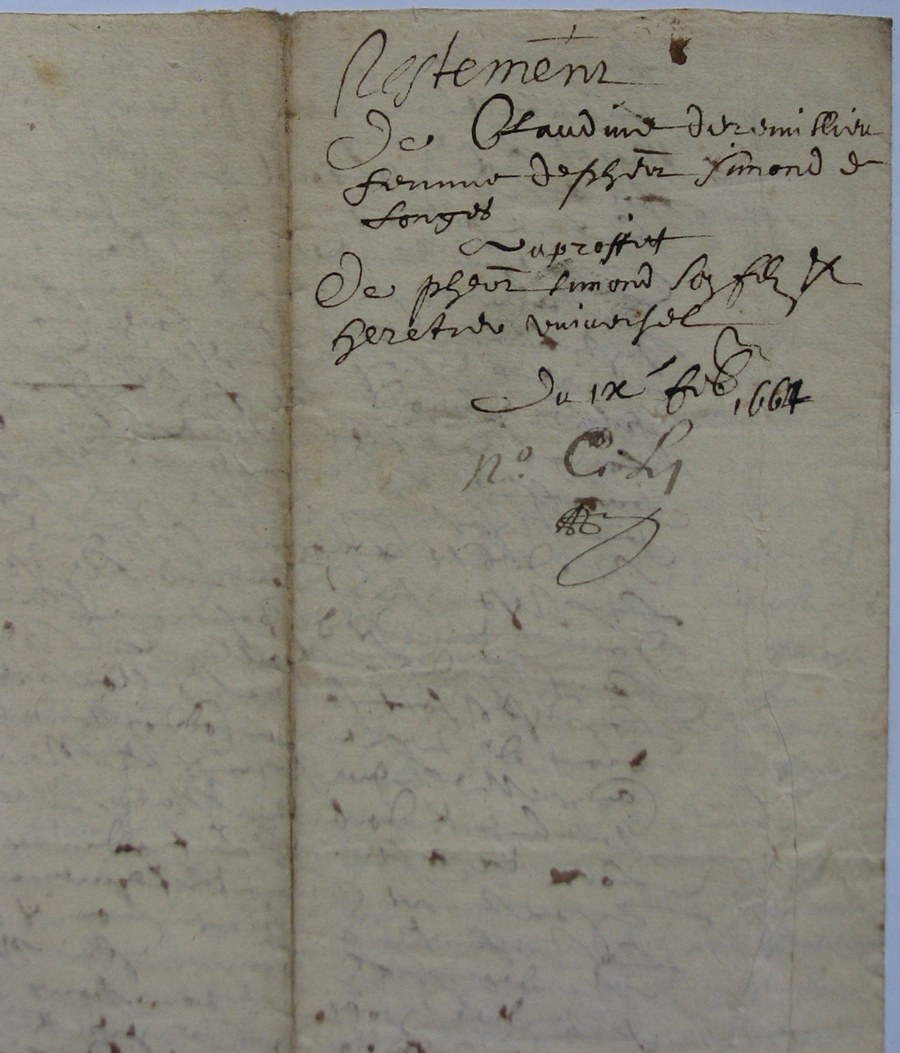 Testement
De Claudine deremillieu
femme de pherr Simond de
Longes
au proffict
De pherr Simond son filz et
heretier universel
Du ix feb 1664
N° C.